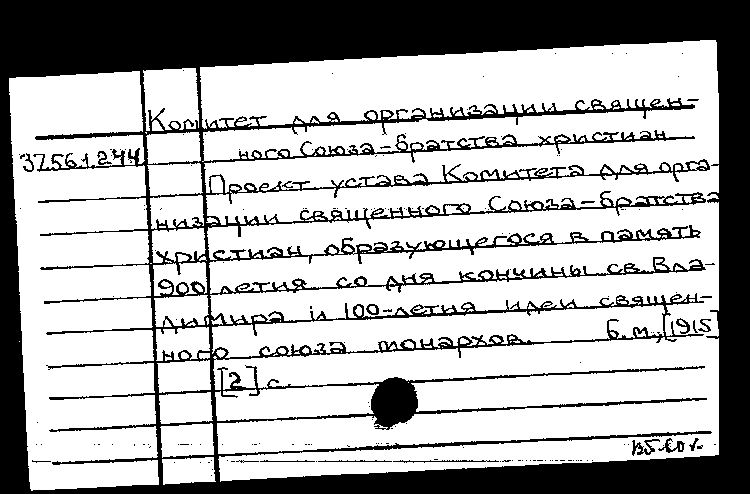 Комитет для организации священ-
37.56.1.244
ного Союза-братства христиан
Проект устава Комитета для орга-
низации священного Союза-братства
христиан, образующегося в память
900 летия со дня кончины св. Вла-
димира и 100-летия идеи священ-
ного союза монархов. Б.м.,[1915]
[2] с.